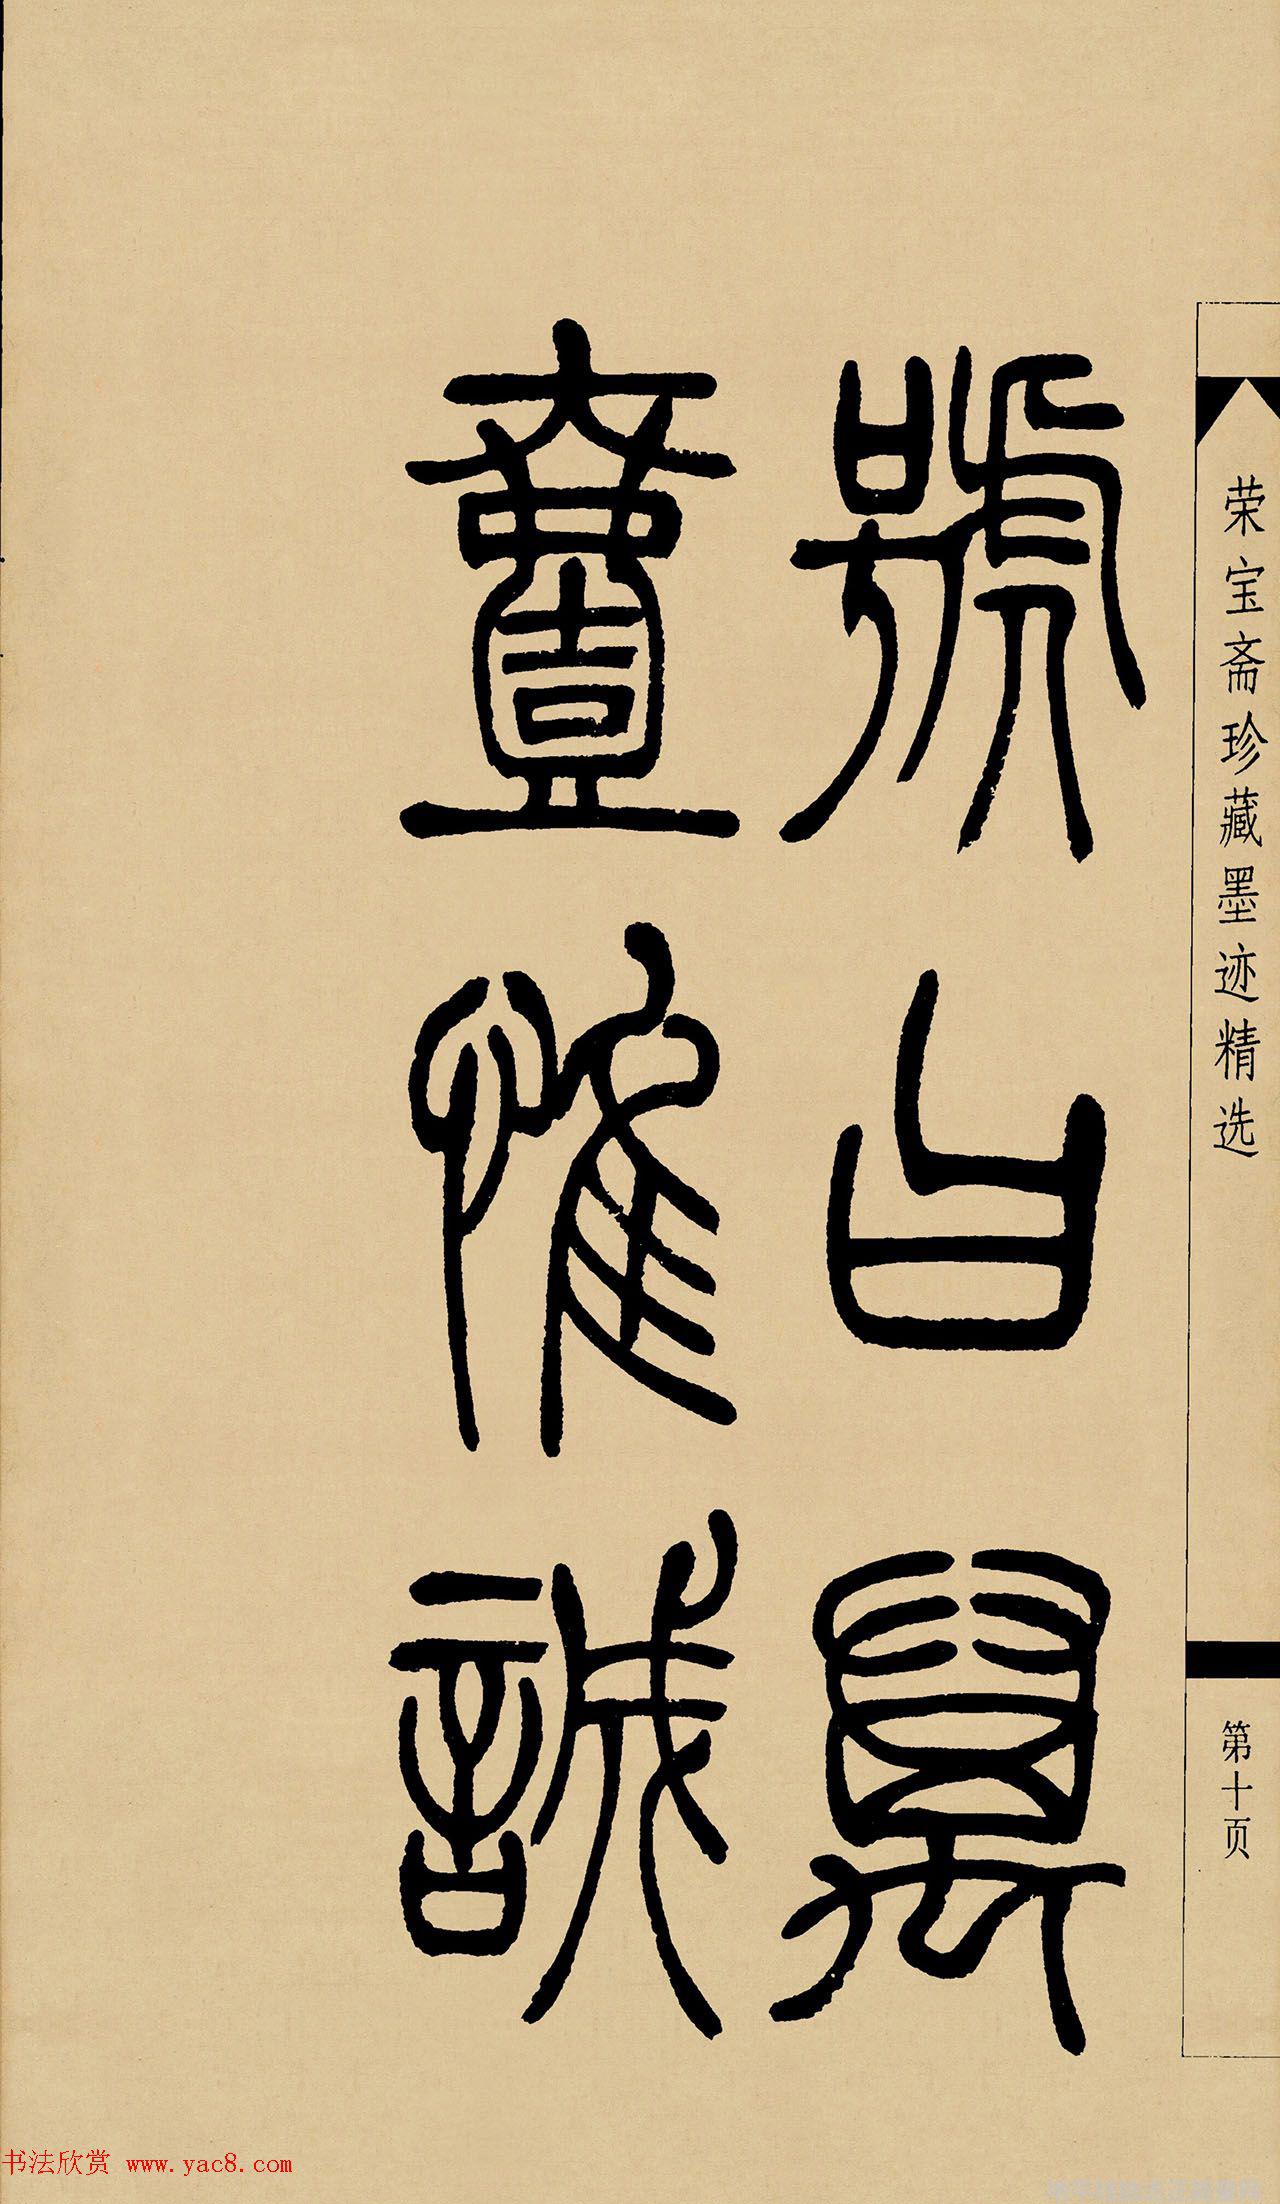 荣宝斋珍藏墨迹精选
第十页
號以
壹惟誠
书法欣赏 www.yac8.com